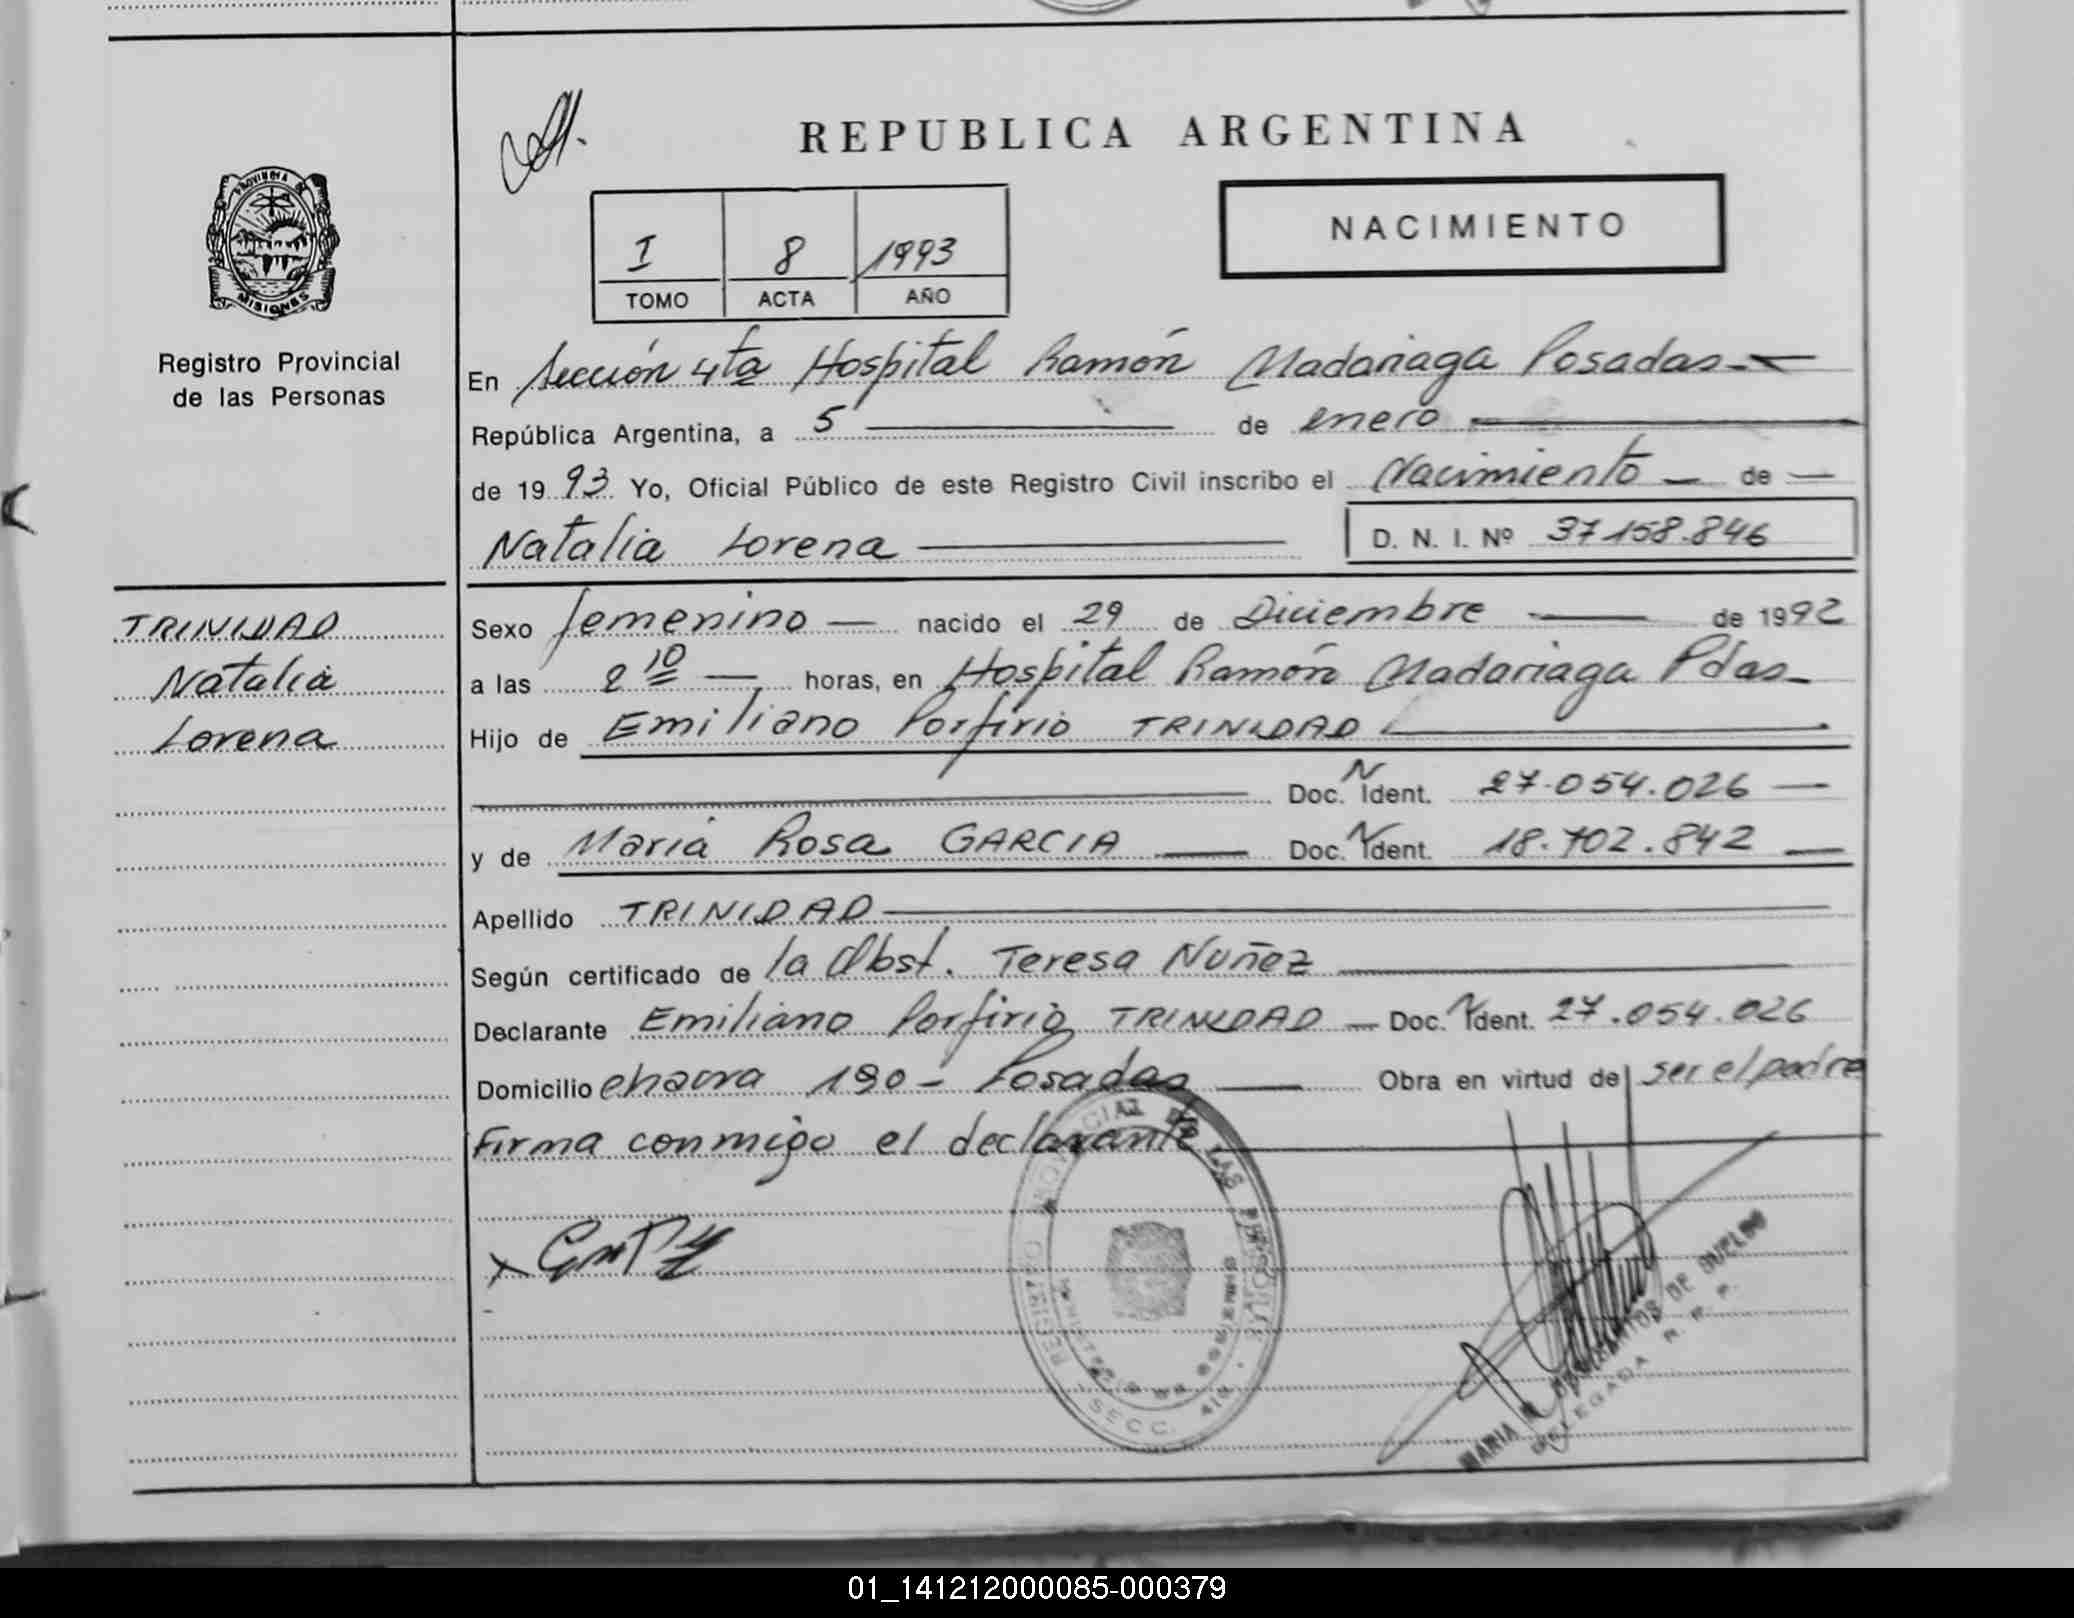 REPUBLICA ARGENTINA
PROVINCIA DE MISIONES
Registro Provincial
de las Personas
I 8 1993
TOMO ACTA AÑO
NACIMIENTO
En Sección 4ta Hospital Ramón Madariaga Posadas
República Argentina, a 5 de enero
de 1993 Yo, Oficial Público de este Registro Civil inscribo el Nacimiento de
Natalia Lorena D. N. I. Nº 37158.846
TRINIDAD
Natalia
Lorena
Sexo femenino nacido el 29 de Diciembre de 1992
a las 2 10 horas, en Hospital Ramón Madariaga Pdas
Hijo de Emiliano Porfirio TRINIDAD
Doc. N Ident. 27.054.026
y de Maria Rosa GARCIA Doc. N Ident. 18.702.842
Apellido TRINIDAD
Según certificado de la Obst. Teresa Nuñez
Declarante Emiliano Porfirio TRINIDAD Doc. N Ident. 27.054.026
Domicilio chacra 190 - Posadas Obra en virtud de ser el padre
Firma conmigo el declarante
REGISTRO PROVINCIAL DE LAS PERSONAS
MINISTERIO DE GOBIERNO
SECC. 4ta
MARIA DE
DELEGADA R. P. P.
01_141212000085-000379